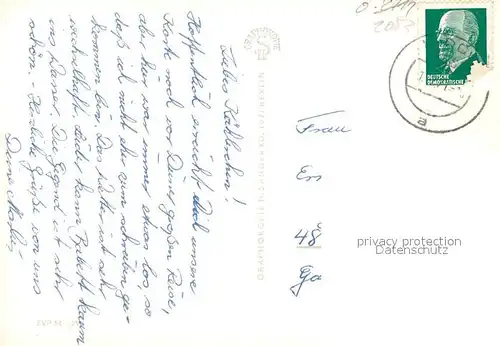 Liebes Kätherchen!
Hoffentlich erreicht Dich unsere
Karte noch vor Deiner großen Reise,
aber hier war immer etwas los, so
daß ich nicht eher zum schreiben ge-
kommen bin. Das Wetter ist sehr
wechselhaft, leider kann Babett kaum
ins Wasser. Die Gegend ist sehr
schön. Herzliche Grüße von uns
Deine
GRAPHOKOPIE H. SANDER KG, 1071 BERLIN
DEUTSCHE
DEMOKRATISCHE
a
Frau
48
privacy protection
Datenschutz